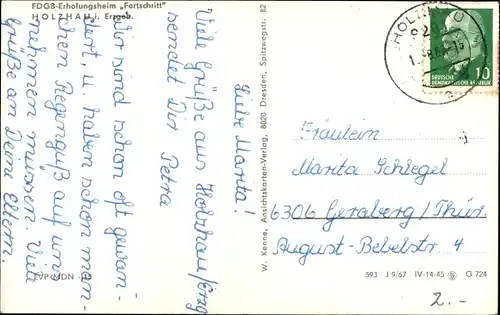 FDGB-Erholungsheim „Fortschritt"
HOLZHAU i. Erzgeb.
Liebe Marita!
Viele Grüße aus Holzhau/Erzg
sendet Dir Petra
Wir sind schon oft gewan-
dert, u. haben schon man-
chen Regenguß auf uns
nehmen müssen. Viele
Grüße an Deine Eltern.
EVP MDN
W. Kenne, Ansichtskarten-Verlag, 8020 Dresden, Spitzwegstr. 82
HOLZHAU
DEUTSCHE
DEMOKRATISCHE REPUBLIK
10
Fräulein
Marita Schlegel
6306 Geraberg/Thür.
August-Bebelstr. 4
593 J 9/67 IV-14-45 G 724
2.-